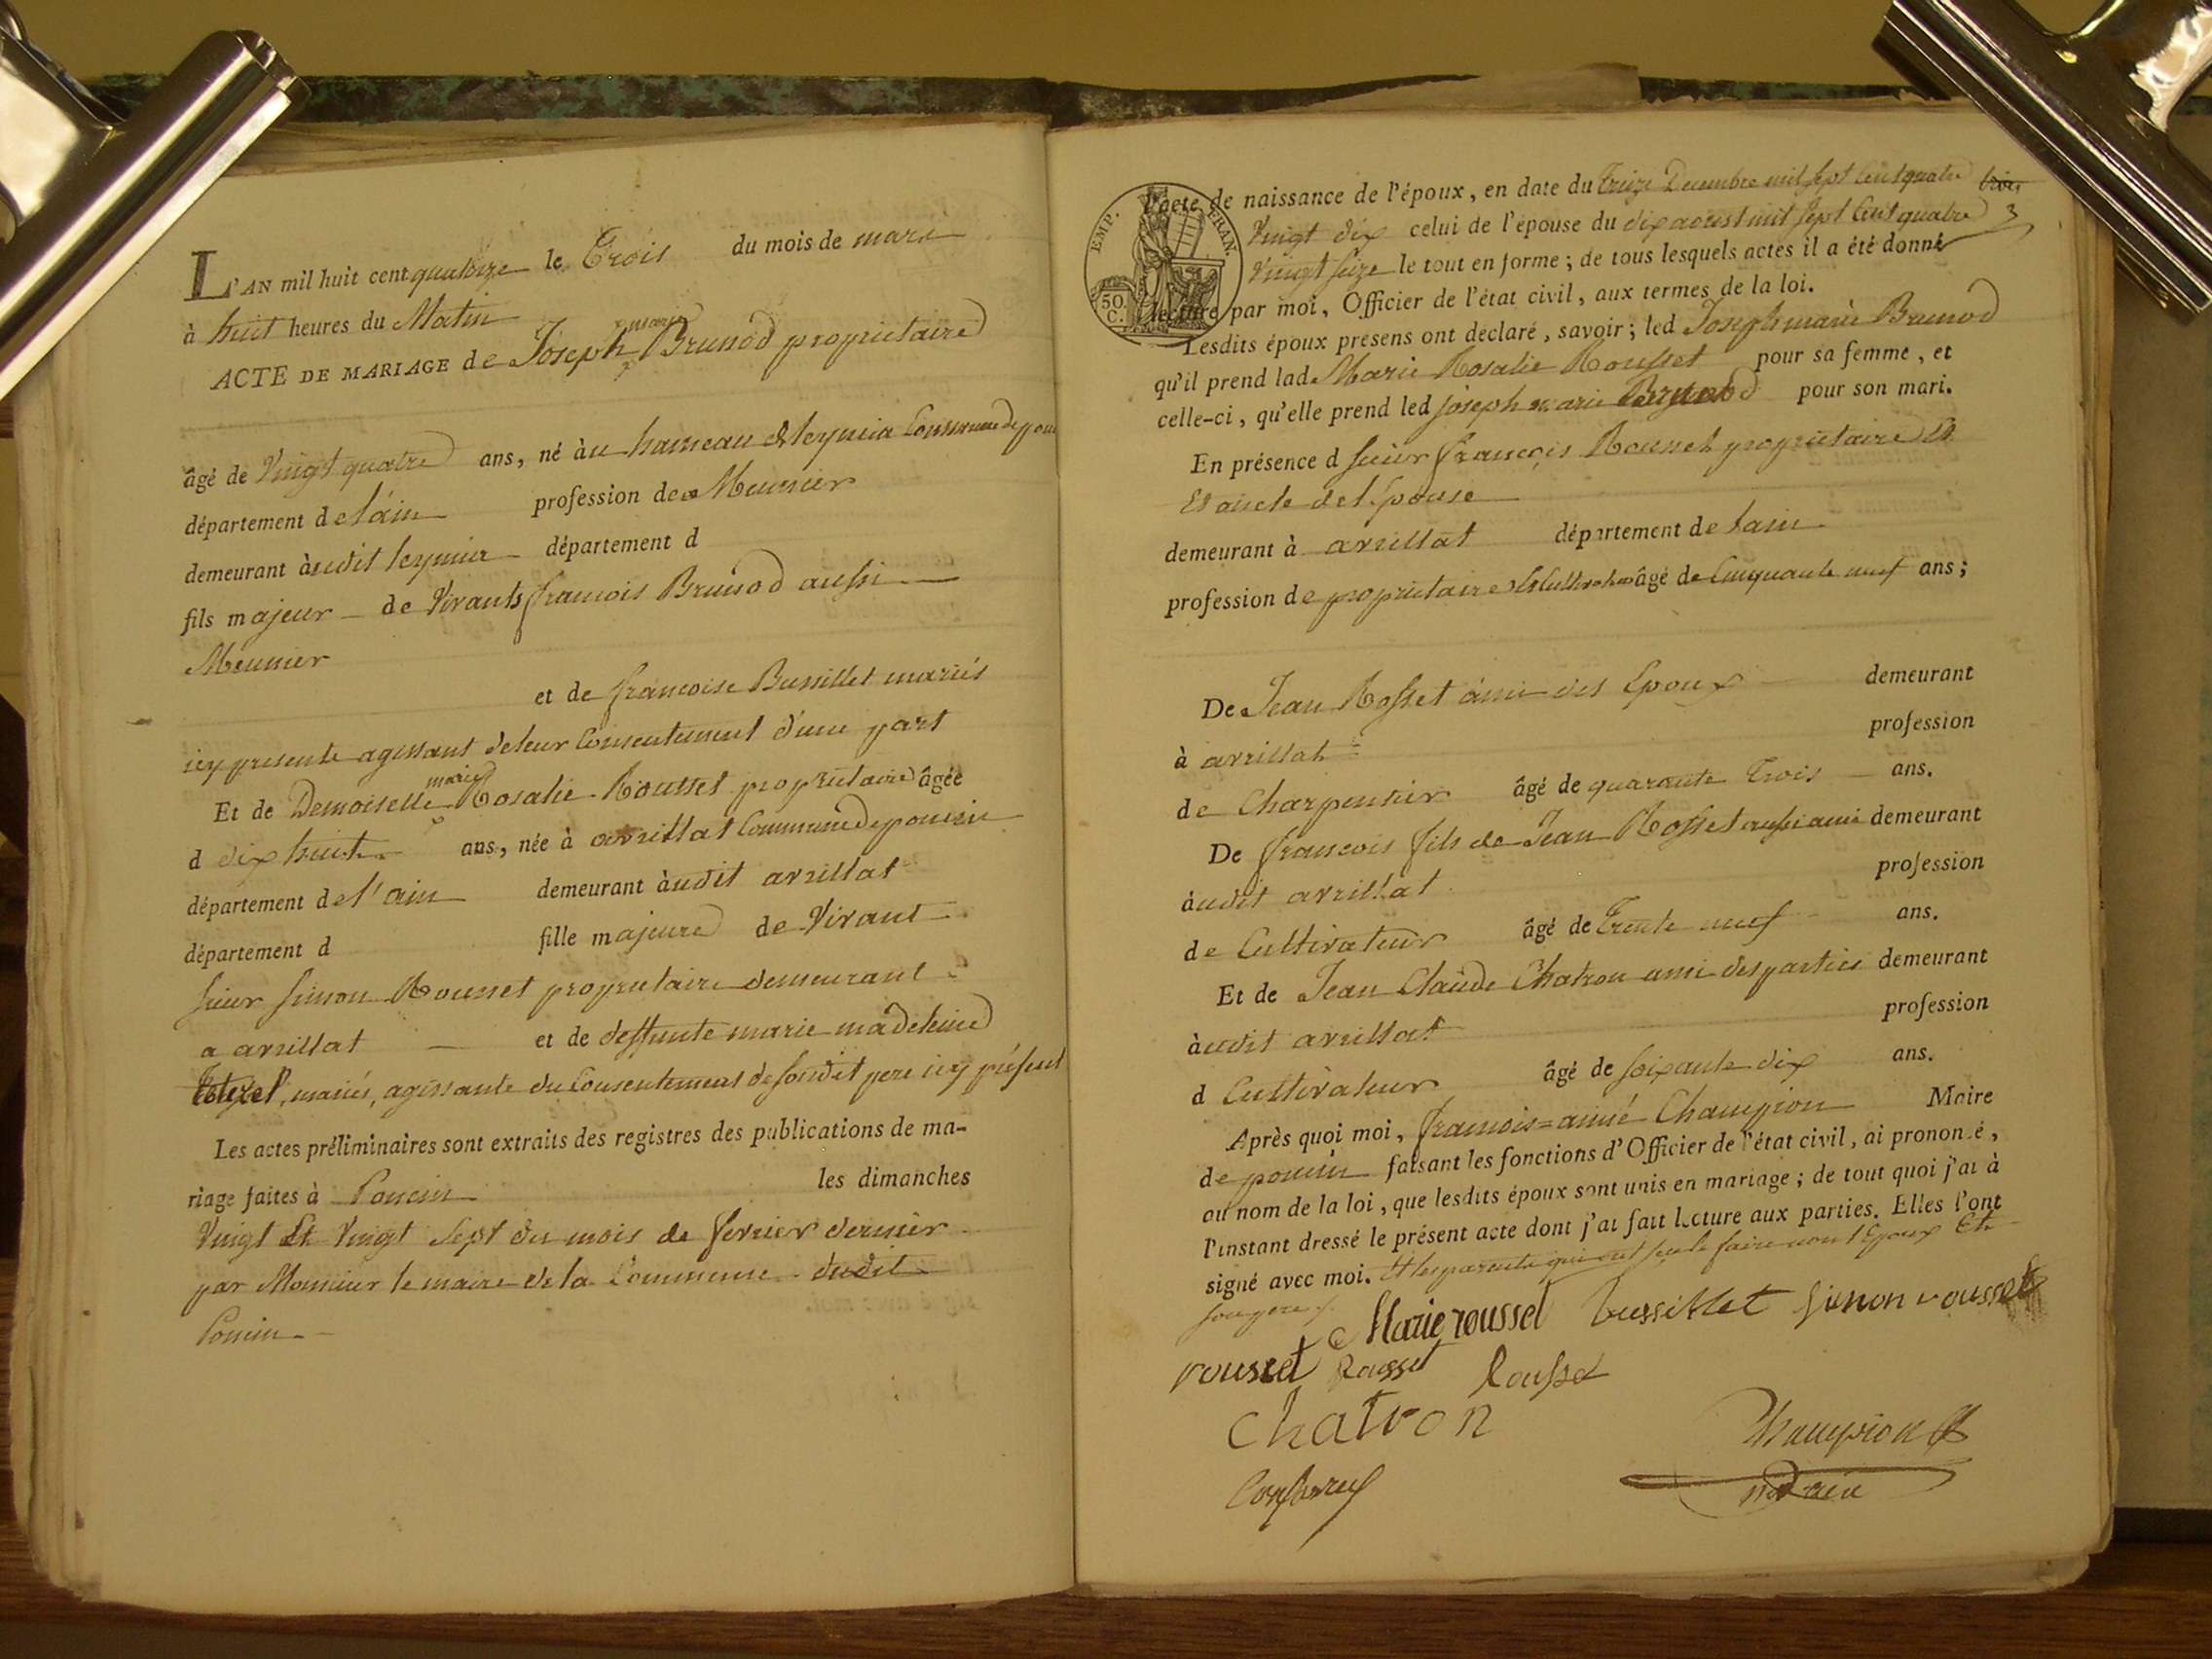 L'AN mil huit cent quatorze le Trois du mois de mars
à huit heures du Matin
marie
ACTE DE MARIAGE de Joseph Brunod proprietaire
âgé de Vingt quatre ans, né àu hameau de leymia Commune de
département de l'ain profession de Meunier
demeurant àudit leymia département d
fils majeur de Vivants francois Brunod aussi
Meunier
et de françoise Bussillet mariés
icy presente agissant de leur Consentement d'une part
marie
Et de Demoiselle Rosalie Rousset proprietaire âgée
d dix huit ans, née à avrillat Commune de poncin
département de l'ain demeurant àudit avrillat
département d fille majeure de Vivant
sieur simon Rousset proprietaire demeurant
a avrillat et de deffunte marie madeleine
mariés, agissante du Consentement de sondit pere icy présent
Les actes préliminaires sont extraits des registres des publications de ma-
riage faites à Poncin les dimanches
Vingt Et Vingt Sept du mois de fevrier dernier
par Monsieur le maire de la Commune dudit
Poncin
EMP. FRAN.
50. C.
L'acte de naissance de l'époux, en date du treize Decembre mil sept Cent quatre
Vingt dix celui de l'épouse du dix aoust mil sept Cent quatre 3
Vingt seize le tout en forme; de tous lesquels actes il a été donné
lecture par moi, Officier de l'état civil, aux termes de la loi.
Lesdits époux presens ont declaré, savoir; led Joseph marie Brunod
qu'il prend lad Marie Rosalie Rousset pour sa femme, et
celle-ci, qu'elle prend led joseph marie Brunod pour son mari.
En présence d sieur françois Rousset proprietaire Et
Et oncle de l'Epouse
demeurant à avrillat département de lain
profession de proprietaire Et Cultivateur âgé de Cinquante neuf ans;
De Jean Rosset ami des Epoux demeurant
à avrillat profession
de Charpentier âgé de quarante Trois ans.
De francois fils de Jean Rosset aussi ami demeurant
àudit avrillat profession
de Cultivateur âgé de Trente neuf ans.
Et de Jean Claude Chatron ami des parties demeurant
àudit avrillat profession
d Cultivateur âgé de soixante dix ans.
Après quoi moi, francois=aimé Champion Maire
de poncin faisant les fonctions d'Officier de l'état civil, ai prononcé,
au nom de la loi, que lesdits époux sont unis en mariage; de tout quoi j'ai à
l'instant dressé le présent acte dont j'ai fait lecture aux parties. Elles l'ont
signé avec moi. Et les parents qui ont sçu le faire non l'Epoux Et
son pere
Marie roussel bussillet simon rousset
rousset Rosset Rousset
Chatron
Champion